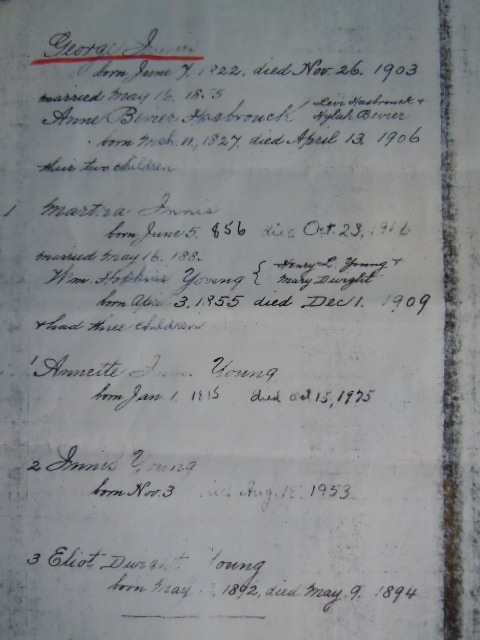 George Innis
born June 7, 1822, died Nov. 26. 1903
married May 16, 18 5
Anne Bevier Hasbrouck { Levi Hasbrouck &
Hylah Bevier
born Mch. 11, 1827, died April 13. 1906
their two children
1 Martha Innis
born June 5, 856 died Oct. 23, 19
married May 16. 188
Wm. Hopkins Young { Henry L. Young &
Mary Dwight
born Apr 3, 1855 died Dec 1. 1909
& had three children
1 Annette Innis Young
born Jan. 1, died Oct 15, 1975
2 Innis Young
born Nov. 3 died Aug. 1953
3 Eliot Dwight Young
born May 1892, died May 9. 1894